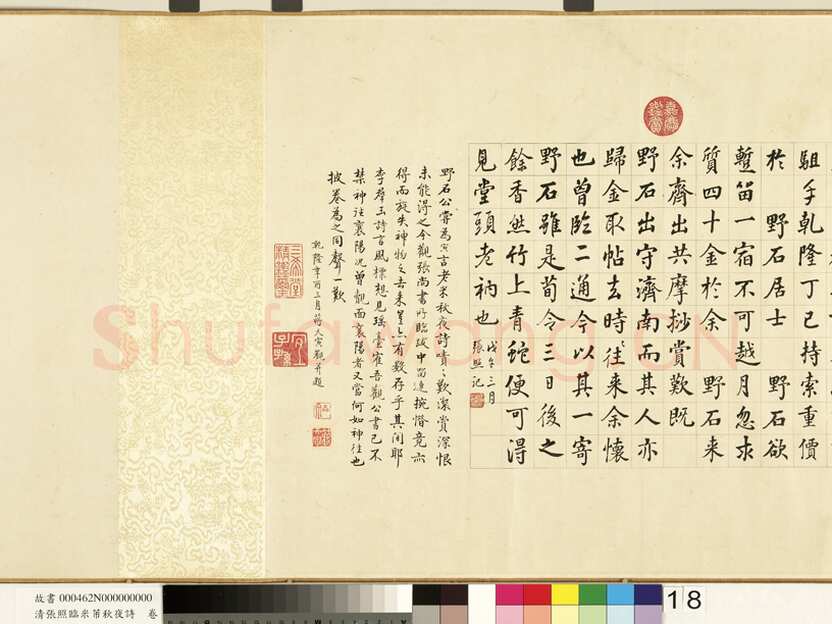 駔手乾隆丁巳持索重價
於 野石居士 野石欲
蹔留一宿不可越月忽求
質四十金於余 野石来
余齋出共摩挱賞歎既
野石出守濟南而其人亦
歸金取帖去時往来余懷
也曾臨二通今以其一寄
野石雖是荀令三日後之
餘香然竹上青蛇便可得
見堂頭老衲也
戊午三月
張照記
野石公嘗為寅言老米秋夜詩嘖〻歎潔賞深恨
未能得之今觀張尚書所臨跋中留連惋惜竟亦
得而旋失神物之去来豈亦有數存乎其间耶
李羣玉詩言風標想見瑶臺寉吾觀公書已不
禁神往襄陽況曾覩而襄陽者又當何如神往也
披卷為之同聲一歎
乾隆辛酉三月蔣大寅觀并題
嘉慶鑑賞
三希堂精鑑璽
宜子孫
ShufaWang.CN
故書 000462N000000000
清張照臨米芾秋夜詩 卷
18